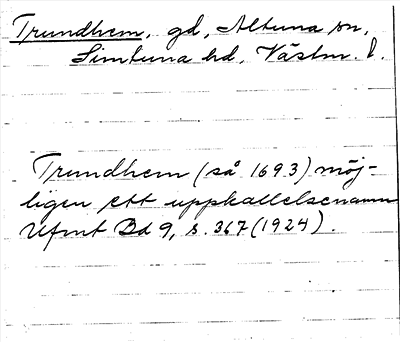 Trundhem, gd, Altuna sn,
Simtuna hd, Västm. l.
Trundhem (så 1693) möj-
ligen ett uppkallelsenamn
Ufmt Bd 9, s. 367 (1924).